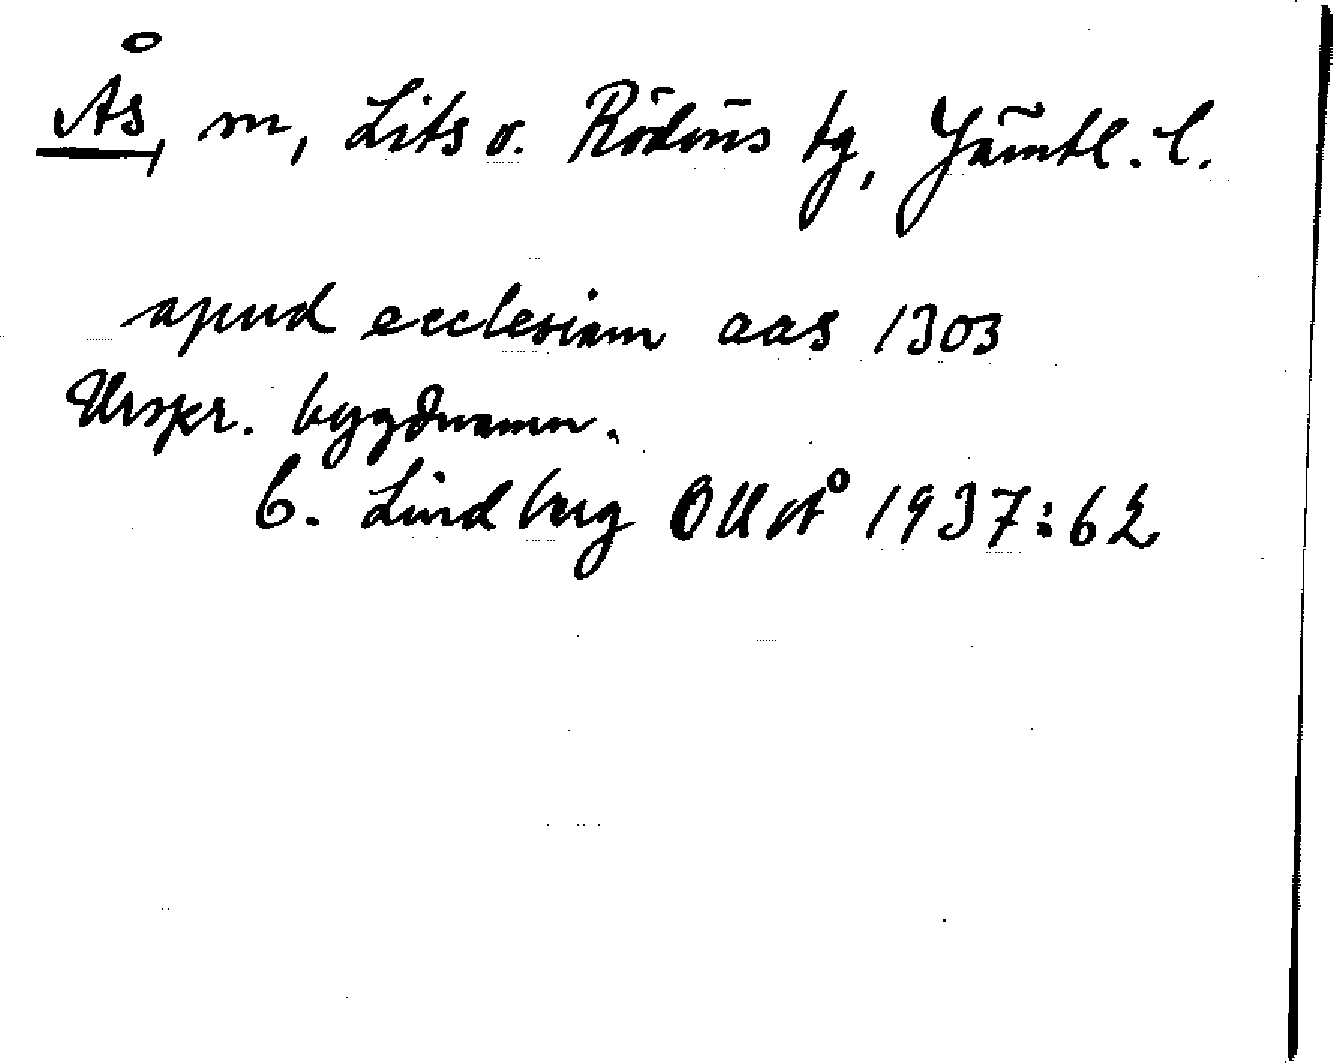 Ås, sn, Lits o. Rödöns tg, Jämtl. l.
apud ecclesiam aas 1303
Urspr. bygdnamn.
C. Lindberg OUÅ 1937:62